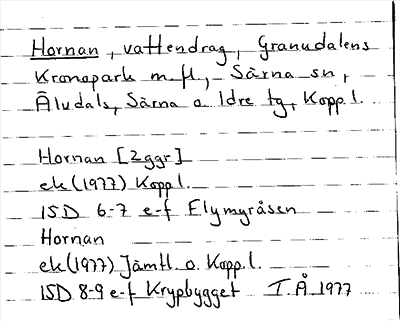 Hornan, vattendrag, Granudalens
Kronopark m.fl., Särna sn,
Älvdals, Särna o Idre tg, Kopp.l.
Hornan [2ggr]
ek(1977) Kopp l.
15D 6-7 e-f Elymyråsen
Hornan
ek(1977) Jämtl. o. Kopp.l.
15D 8-9 e-f Krypbygget I.Å 1977